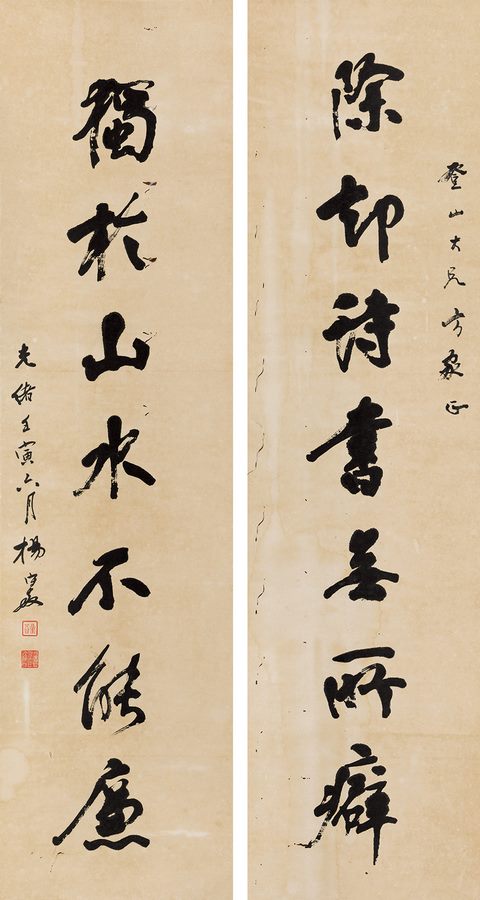 登山大兄方家正
除却詩書無所癖
獨於山水不能廉
光緒壬寅六月楊守敬